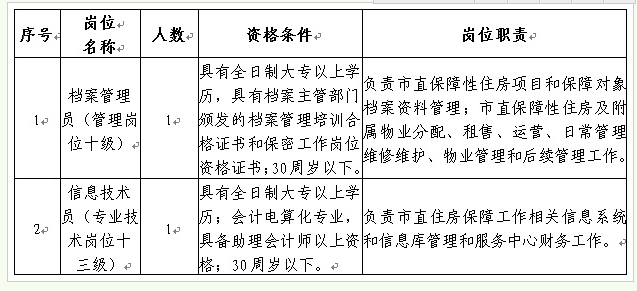 序号 岗位名称 人数 资格条件 岗位职责
1
档案管理
员（管理岗
位十级）
1
具有全日制大专以上学
历，具有档案主管部门
颁发的档案管理培训合
格证书和保密工作岗位
资格证书；30周岁以下。
负责市直保障性住房项目和保障对象
档案资料管理；市直保障性住房及附
属物业分配、租售、运营、日常管理
维修维护、物业管理和后续管理工作。
2
信息技术
员（专业技
术岗位十
三级）
1
具有全日制大专以上学
历；会计电算化专业，
具备助理会计师以上资
格；30周岁以下。
负责市直住房保障工作相关信息系统
和信息库管理和服务中心财务工作。